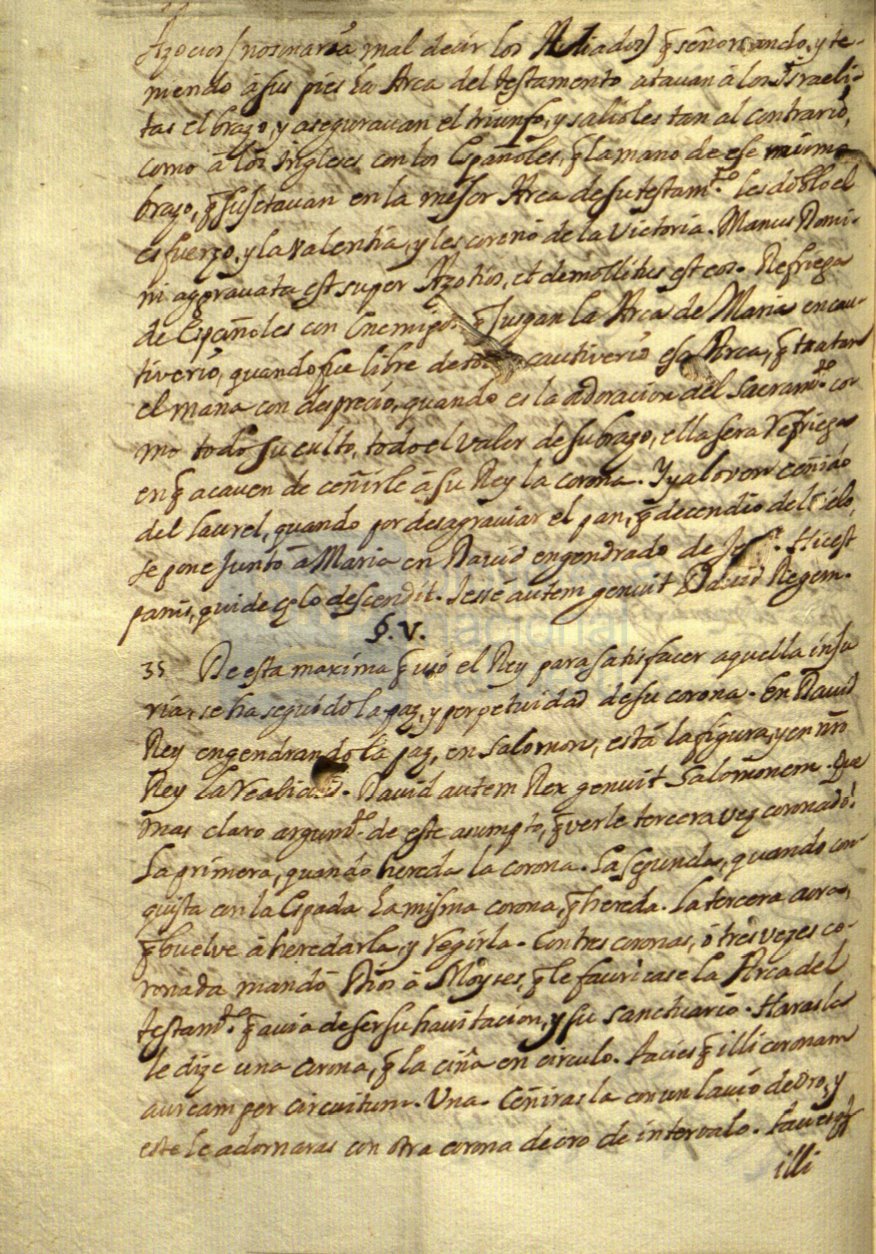 Azocios (nos mararà mal decir los Aliados) q̃ señoreando, y te-
niendo à sus pies la Arca del testamento atauan à los Israeli-
tas el brazo, y aseguravan el triunfo, y salioles tan al contrario,
como à los Ingleses con los Españoles, q̃ la mano de ese mismo
brazo, q̃ sujetauan en la mejor Arca de su testam.to les doblo el
esfuerzo, y la valentia, y les coronó de la Victoria. Manus Domi-
ni aggravata est super Azotios, et demollitus est eos. Refriega
de Españoles con Enemigos q̃ Jusgan la Arca de Maria en cau-
tiverio, quando fue libre de cautiverio esa Arca, q̃ tratan
el manà con desprecio, quando es la adoracion del Sacram.to co-
mo todo su culto, todo el valor de su brazo, ella sera Refriega
en q̃ acaven de ceñirle à su Rey la corona. Y ya lo ven ceñido
del laurel, quando por desagraviar el pan, q̃ decendio del Cielo,
se pone Junto à Maria en David engendrado de Hic est
panis, qui de cęlo descendit. Jesse autem genuit David Regem.
§. V.
35 De esta maxima q̃ usó el Rey para satisfacer aquella inju
ria, se ha seguido la paz, y perpetuidad de su corona. En David
Rey engendrando la paz, en Salomon, està la figura, y en nro
Rey la Realidad. David autem Rex genuit Salomonem. Que
mas claro argum.to de este asumpto, q̃ verle tercera vez coronado!
La primera, quando hereda la corona. La segunda, quando con-
quista con la Espada la misma corona, q̃ hereda. La tercera aora,
q̃ buelve à heredarla, y regirla. Con tres coronas, ò tres vezes co-
ronada mandò Dios à Moyses, q̃ le fauricase la Arca del
testam.to q̃ auia de ser su hauitacion, y su sanctuario. Haras le
le dize una corona, q̃ la ciña en circulo. Facies q̃ illi coronam
auream per circuitum. Una. Ceñiras la con un lauio de oro, y
este le adornaras con otra corona de oro de interualo.
illi